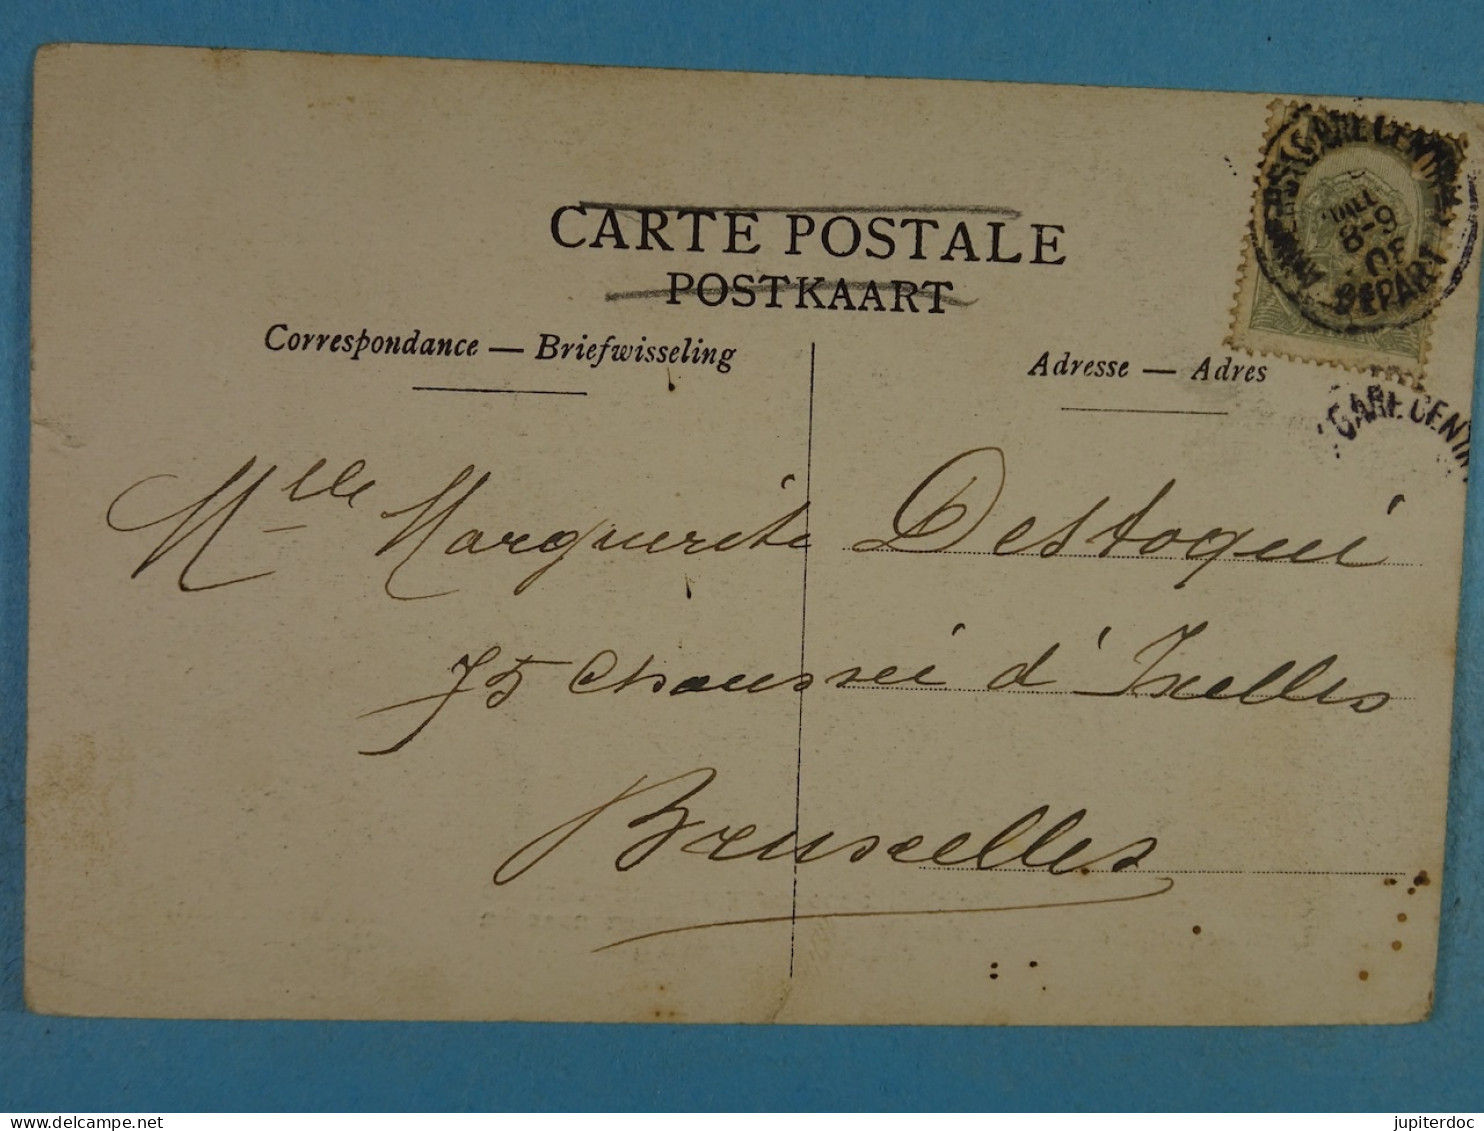 CARTE POSTALE
POSTKAART
Correspondance — Briefwisseling
Adresse — Adres
ANVERS (GARE CENTRALE)
JUIL
8-9
DEPART
GARE CENTR
Mlle Marguerite Destoqui
75 Chaussée d'Ixelles
Bruxelles
jupiterdoc
delcampe.net